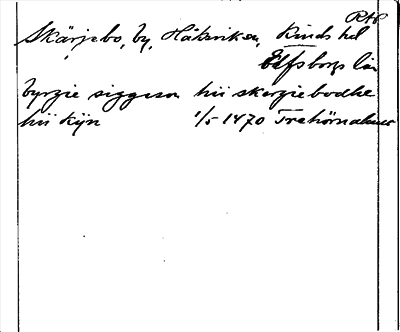 RAP
Skärjebo, by, Håksviken, Kinds hd
Elfsborgs län
byrgie siggeson hii skergiebodhe
hii Kijn 1/5 1470 Trehörnahus